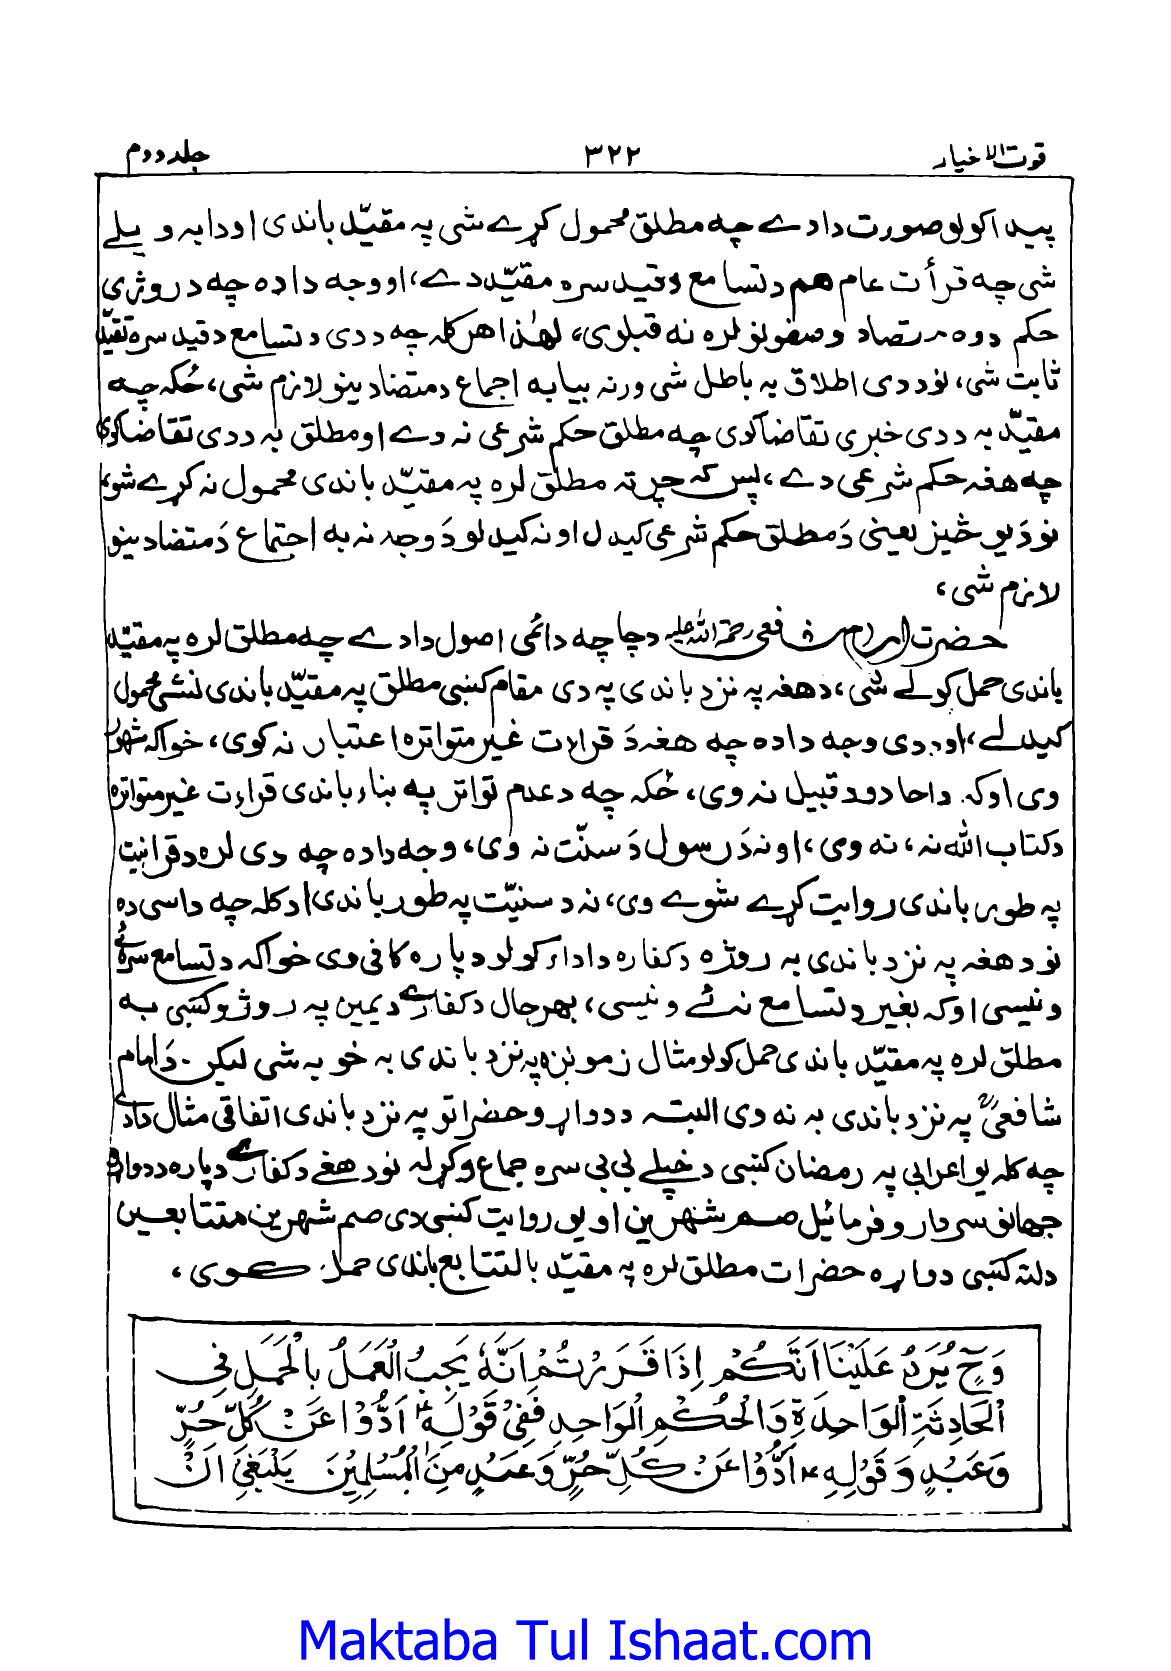 قوت الاخیار ۳۲۲ جلد دوم
پیدا کولو صورت دادے چه مطلق محمول کړے شی په مقیّد باندی او دا به ویلے
شی چه قرأت عام هم د تسامع قید سره مقیّد دے، او وجه داده چه د روژی
حکم دوه متضاد وصفونو لره نه قبلوی، لهٰذا هر کله چه د دی د تسامع د قید سره تقیّد
ثابت شی، نو د دی اطلاق به باطل شی ورنه بیا به اجماع د متضادینو لازم شی، ځکه چه
مقیّد به د دی خبری تقاضا کوی چه مطلق حکم شرعی نه دے او مطلق به د دی تقاضا کوی
چه هغه حکم شرعی دے، پس که چرته مطلق لره په مقیّد باندی محمول نه کړے شو،
نو دَ یو څیز یعنی دَ مطلق حکم شرعی کیدل او نه کیدلو دَ وجه نه به اجتماع دَ متضادینو
لازم شی،
حضرت امام شافعی رحمة الله علیه د چا چه دائمی اصول دادے چه مطلق لره په مقیّد
باندی حمل کولے شی، د هغه په نزد باندی په دی مقام کښی مطلق په مقیّد باندی نشی محمول
کیدلے، او د دی وجه داده چه هغه دَ قرات غیر متواتره اعتبار نه کوی، خواکه مشهور
وی اوکه د احادو د قبیل نه وی، ځکه چه د عدم تواتر په بناء باندی قراءت غیر متواتره
د کتاب الله نه، نه وی، او نه دَ رسول دَ سنّت نه وی، وجه داده چه دی لره د قرانیت
په طور باندی روایت کړے شوے وی، نه د سنیّت په طور باندی او کله چه داسی ده
نو د هغه په نزد باندی به روژه د کفاره د اداء کولو د پاره کافی وی خواکه د تسامع سره ئے
ونیسی اوکه بغیر د تسامع نه ئے ونیسی، بهرحال د کفارے د یمین په روژو کښی به
مطلق لره په مقیّد باندی حمل کولو مثال زمونږه په نزد باندی به خو به شی لیکن دَ امام
شافعیؒ په نزد باندی به نه وی البته د دواړو حضراتو په نزد باندی اتفاقی مثال دادے
چه کله یو اعرابی په رمضان کښی د خپلے بی بی سره جماع وکړله نو د هغے د کفارے د پاره د دواړو
جهانو سردار وفرمائیل صم شهرین او یو روایت کښی دی صم شهرین متتابعین
دلته کښی دواړه حضرات مطلق لره په مقیّد بالتتابع باندی حمل کوی،
وَحٍ یُرَدُ عَلَیْنَا اَنَّکُمْ اِذَا قَرَرْتُمْ اَنَّهٗ یَجِبُ الْعَمَلُ بِالْحَمَلِ فِی
الْحَادِثَةِ الْوَاحِدَةِ وَالْحُکْمِ الْوَاحِدِ فَفِیْ قَوْلِهٖ ؑ اَدُّوْا عَنْ کُلِّ حُرٍّ
وَعَبْدٍ وَقَوْلِهٖ ؑ اَدُّوْا عَنْ کُلِّ حُرٍّ وَعَبْدٍ مِنَ الْمُسْلِمِیْنَ یَنْبَغِیْ اَنْ
Maktaba Tul Ishaat.com